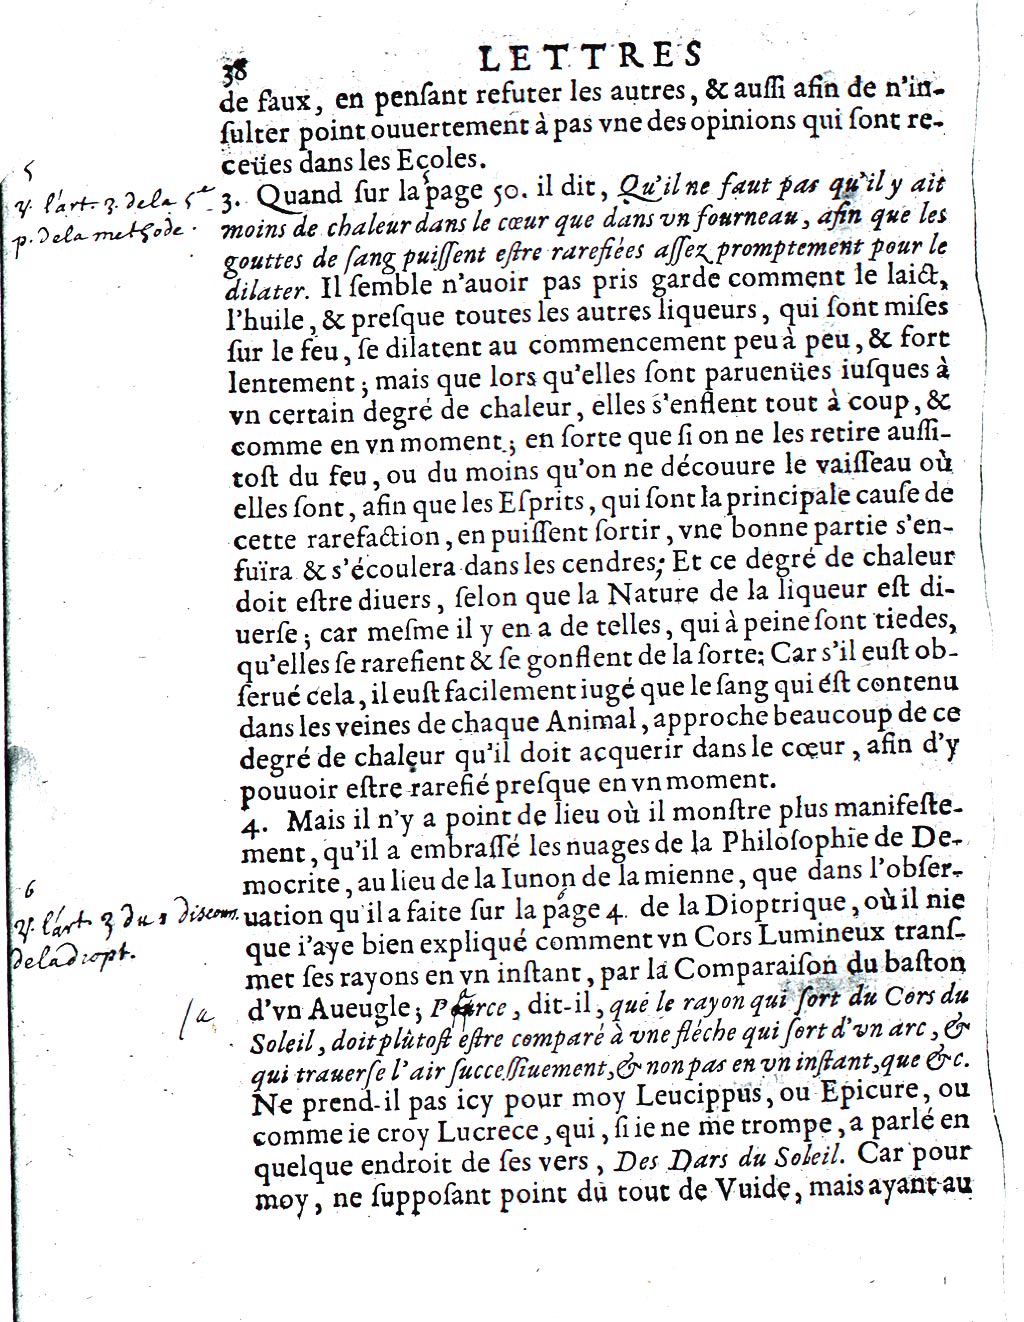 38
LETTRES
de faux, en penſant refuter les autres, & auſſi afin de n'in-
ſulter point ouuertement à pas vne des opinions qui ſont re-
ceües dans les Ecoles.
5
v. l'art. 3. de la 5e
p. de la methode.
5
3. Quand ſur la page 50. il dit, Qu'il ne faut pas qu'il y ait
moins de chaleur dans le cœur que dans vn fourneau, afin que les
gouttes de ſang puiſſent eſtre rarefiées aſſez promptement pour le
dilater. Il ſemble n'auoir pas pris garde comment le laict,
l'huile, & preſque toutes les autres liqueurs, qui ſont miſes
ſur le feu, ſe dilatent au commencement peu à peu, & fort
lentement; mais que lors qu'elles ſont paruenües iuſques à
vn certain degré de chaleur, elles s'enflent tout à coup, &
comme en vn moment; en ſorte que ſi on ne les retire auſſi-
toſt du feu, ou du moins qu'on ne découure le vaiſſeau où
elles ſont, afin que les Eſprits, qui ſont la principale cauſe de
cette rarefaction, en puiſſent ſortir, vne bonne partie s'en-
fuïra & s'écoulera dans les cendres; Et ce degré de chaleur
doit eſtre diuers, ſelon que la Nature de la liqueur eſt di-
uerſe; car meſme il y en a de telles, qui à peine ſont tiedes,
qu'elles ſe rarefient & ſe gonflent de la ſorte; Car s'il euſt ob-
ſerué cela, il euſt facilement iugé que le ſang qui éſt contenu
dans les veines de chaque Animal, approche beaucoup de ce
degré de chaleur qu'il doit acquerir dans le cœur, afin d'y
pouuoir eſtre rarefié preſque en vn moment.
4. Mais il n'y a point de lieu où il monſtre plus manifeſte-
ment, qu'il a embraſſé les nuages de la Philoſophie de De-
mocrite, au lieu de la Iunon de la mienne, que dans l'obſer-
6
v. l'art 3 du 1 discours.
de la diopt.
6
uation qu'il a faite ſur la page 4. de la Dioptrique, où il nie
que i'aye bien expliqué comment vn Cors Lumineux tranſ-
met ſes rayons en vn inſtant, par la Comparaiſon du baſton
/a
a
d'vn Aueugle; Parce, dit-il, que le rayon qui ſort du Cors du
Soleil, doit plûtoſt eſtre comparé à vne fléche qui ſort d'vn arc, &
qui trauerſe l'air ſucceſſiuement, & non pas en vn inſtant, que &c.
Ne prend-il pas icy pour moy Leucippus, ou Epicure, ou
comme ie croy Lucrece, qui, ſi ie ne me trompe, a parlé en
quelque endroit de ſes vers, Des Dars du Soleil. Car pour
moy, ne ſuppoſant point du tout de Vuide, mais ayant au